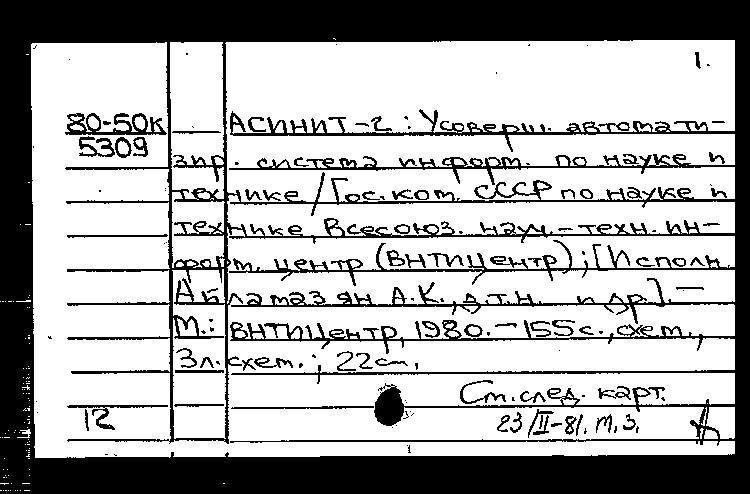 1.
80-50к
5309
АСИНИТ-2 : Усоверш. автомати-
зир. система информ. по науке и
технике / Гос. ком. СССР по науке и
технике, Всесоюз. науч.-техн. ин-
форм. центр (ВНТИЦентр) ; [Исполн.
Абламазян А.К., д.т.н. и др.]. —
М.: ВНТИЦентр, 1980. — 155 с., схем.,
3 л. схем. ; 22 см.
См. след. карт.
12
23/II-81. М.З.